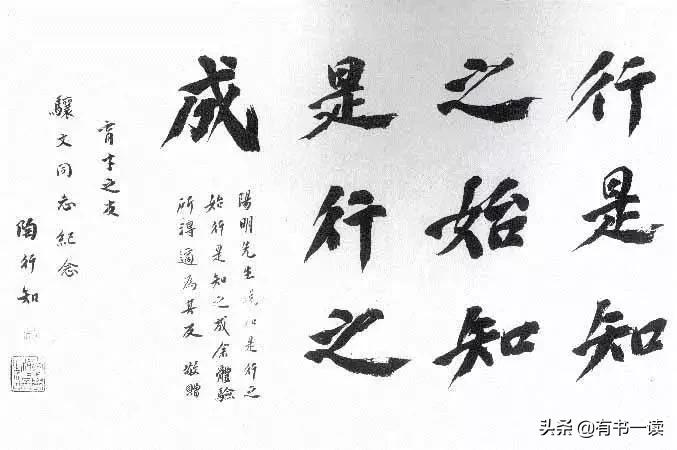 行是知
之始知
是行之
成
陽明先生說知是行之
始行是知之成余體驗
所得適為其反 敬贈
育才之友
驤文同志紀念
陶行知
头条 @有书一读